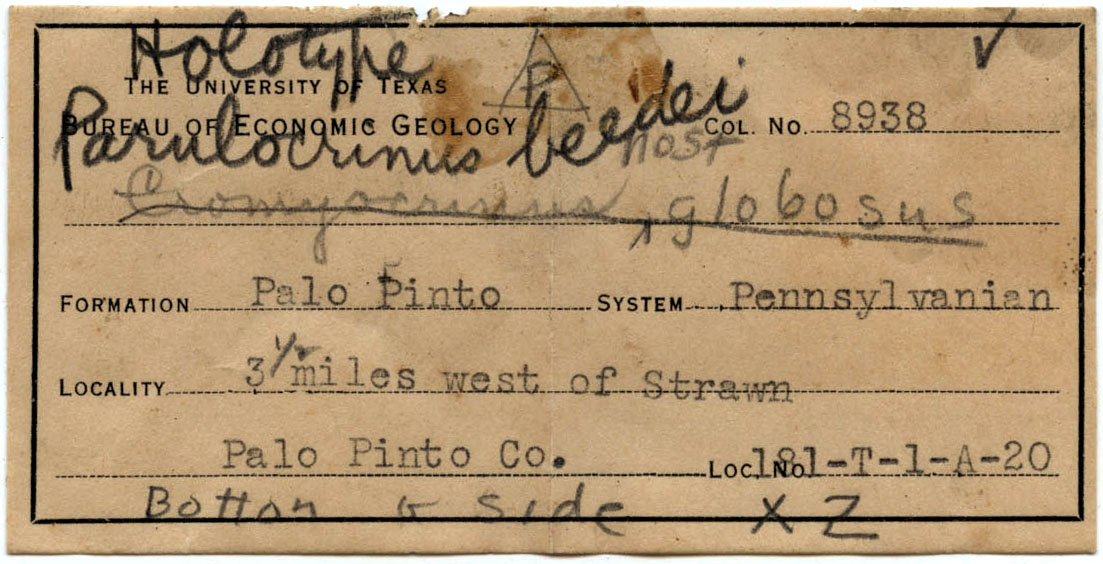 Holotype
THE UNIVERSITY OF TEXAS
P
Parulocrinus beedei
BUREAU OF ECONOMIC GEOLOGY
COL. NO. 8938
not
Cromyocrinus globosus
FORMATION Palo Pinto SYSTEM Pennsylvanian
LOCALITY 3 1/2 miles west of Strawn
Palo Pinto Co. LOC. NO. 181-T-1-A-20
Bottom & Side X 2